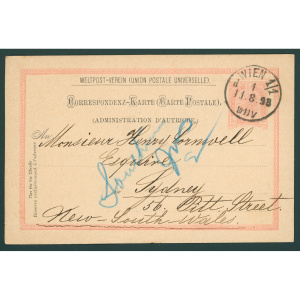 WELTPOST-VEREIN (UNION POSTALE UNIVERSELLE).
CORRESPONDENZ-KARTE (CARTE POSTALE).
(ADMINISTRATION D'AUTRICHE.)
WIEN 1/1
11.8.93
Monsieur Henry Cornwell
Esquire
Sydney
56. Pitt Street.
New-South-Wales.